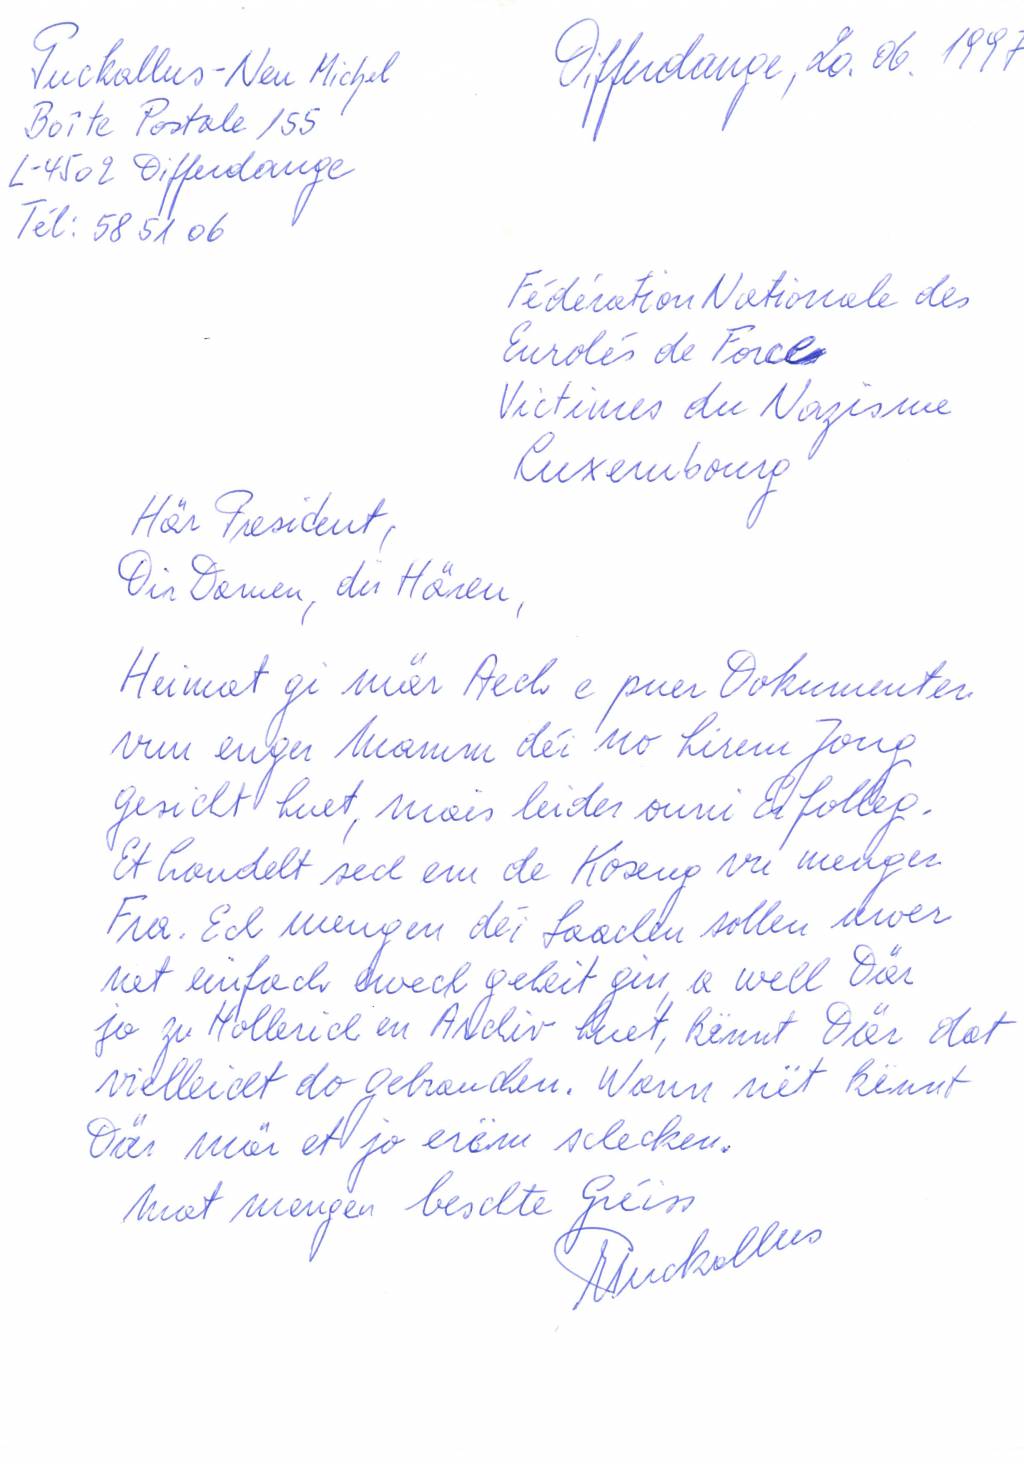 Puckallus-Neu Michel
Boîte Postale 155
L-4502 Differdange
Tél: 58 51 06
Differdange, 20. 06. 1997
Fédération Nationale des
Enrolés de Force
Victimes du Nazisme
Luxembourg
Här President,
Dir Damen, dir Hären,
Heimat gi mär Aech e puer Dokumenten
vun enger Mamm déi no hirem Jong
gesicht huet, mais leider ouni Erfolleg.
Et handelt sech em de Koseng vu menger
Fra. Ech mengen déi Saachen sollen awer
net einfach ewech geheit gin, a well Där
jo zu Hollerich en Archiv huet, kënnt Där dat
vielleicht do gebrauchen. Wann nët kënnt
Där mär et jo erëm schecken.
Mat mengen beschte Gréiss
Puckallus